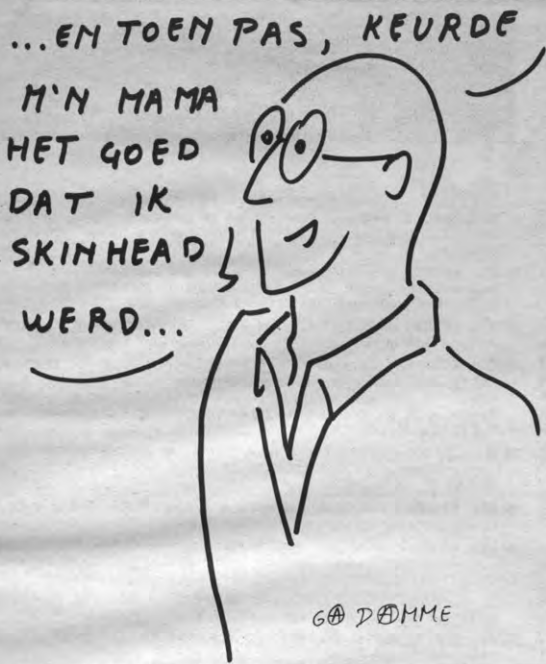 ...EN TOEN PAS, KEURDE
M'N MAMA
HET GOED
DAT IK
SKINHEAD
WERD...
GⒶ DⒶMME